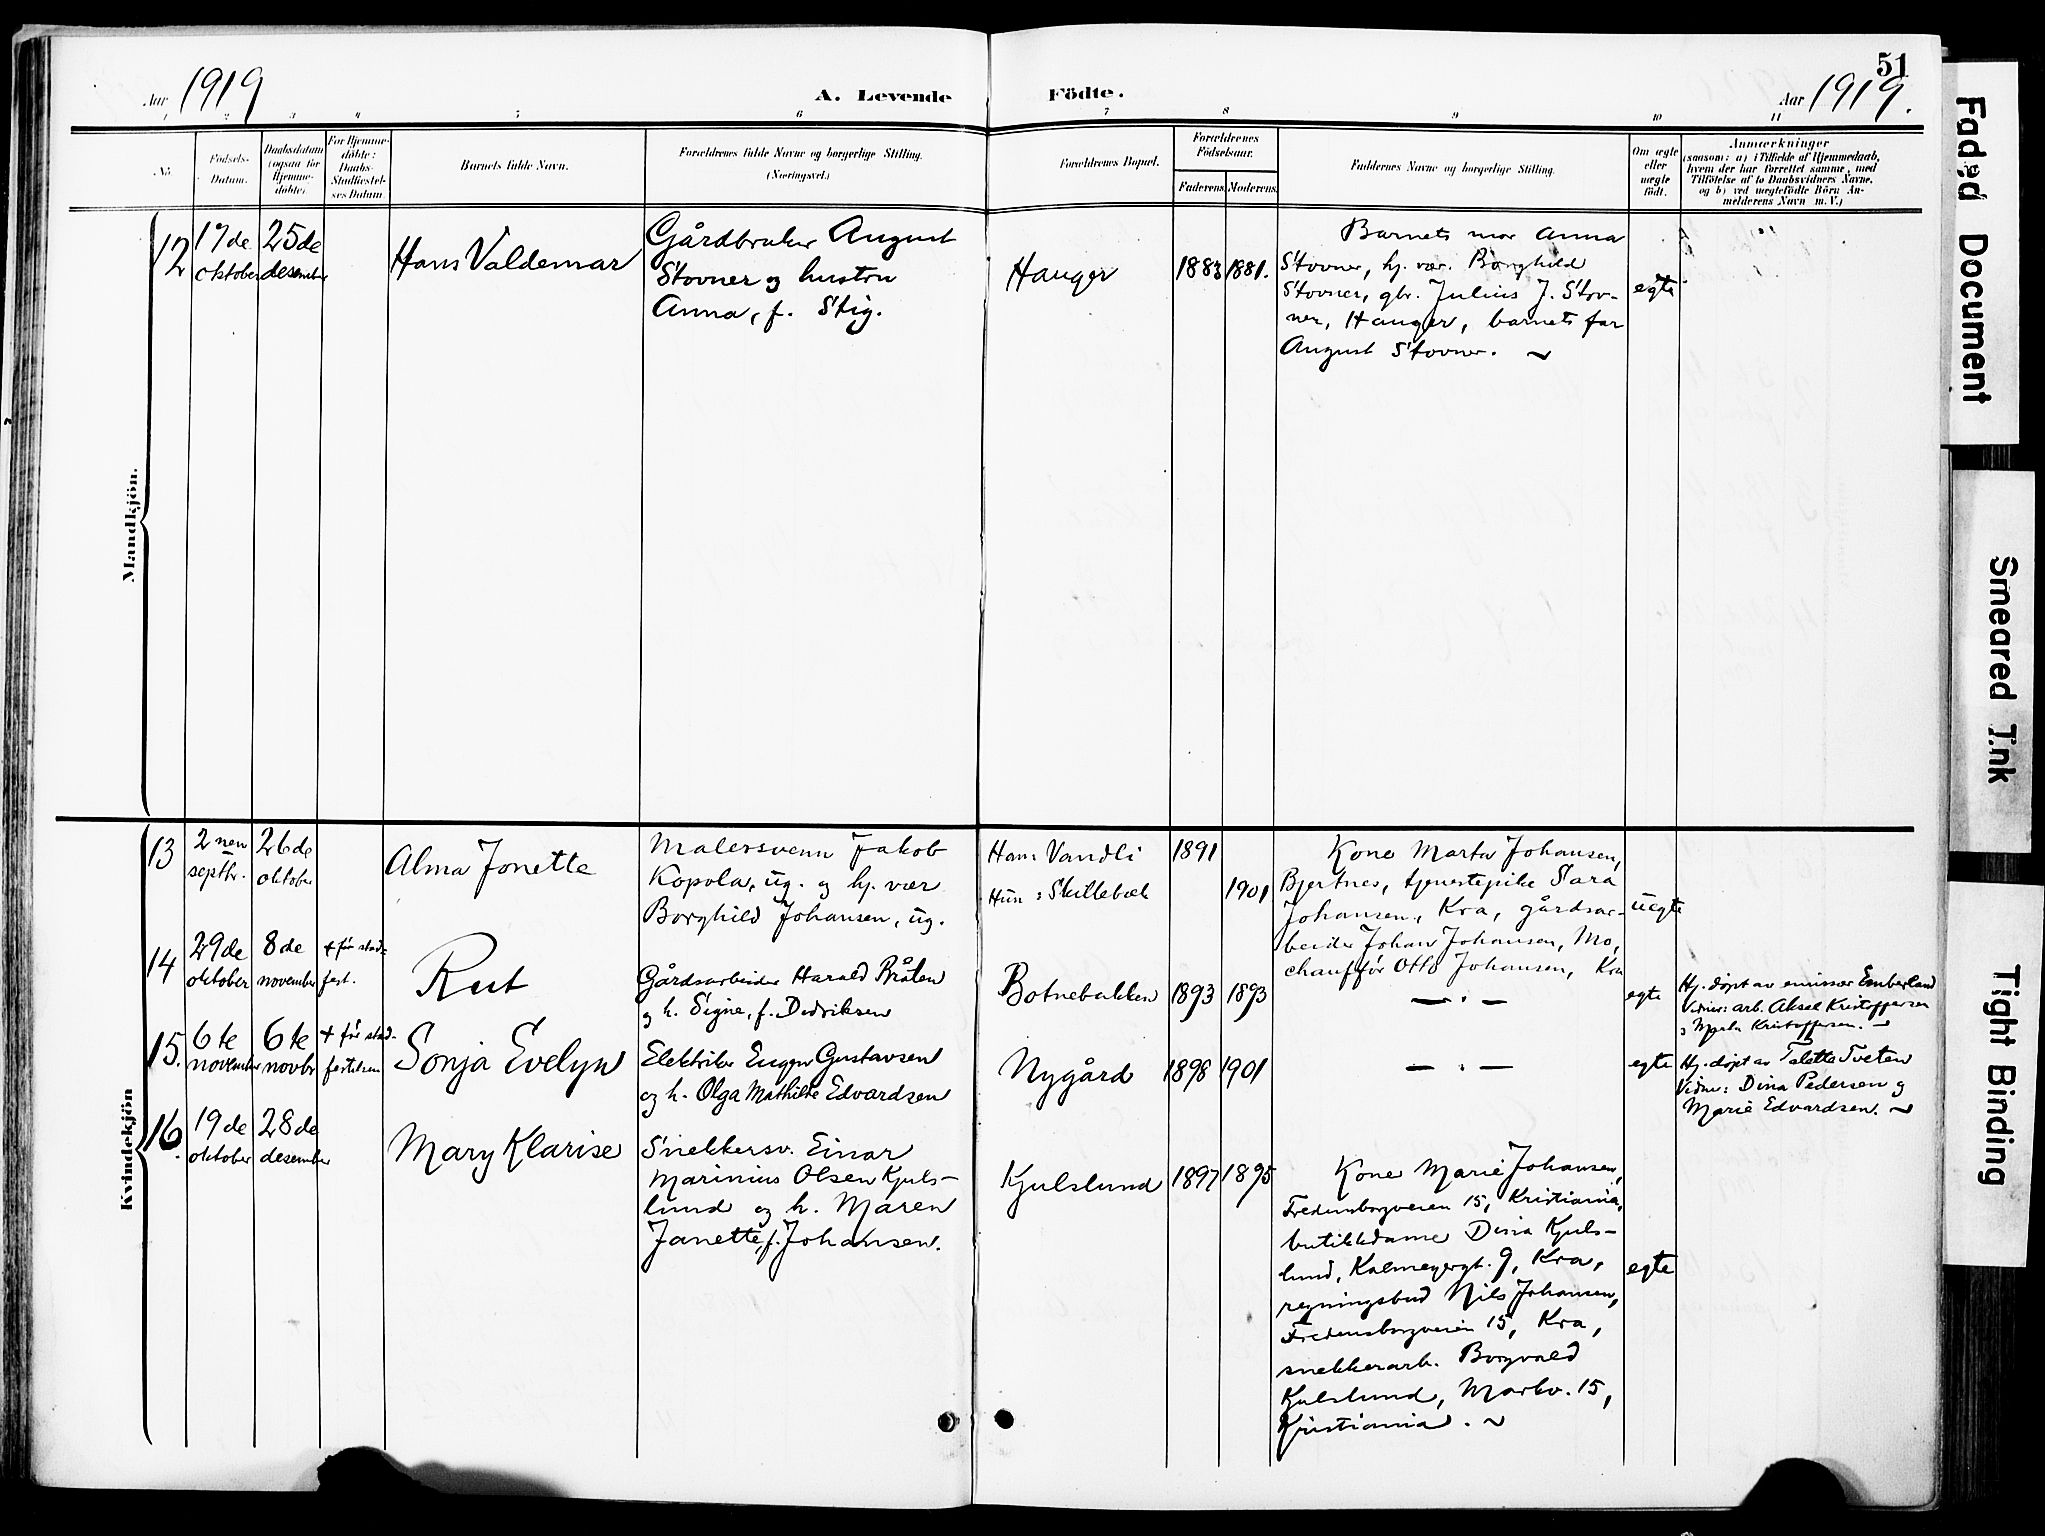 51
Aar 1919
A. Levende Födte.
Aar 1919.
1 2 3 4 5 6 7 8 9 10 11
No.
Födsels-
Datum.
Daabsdatum
(ogsaa for
Hjemme-
döbte).
For Hjemme-
döbte:
Daabs-
Stadfæstel-
ses Datum
Barnets fulde Navn.
Forældrenes fulde Navne og borgerlige Stilling.
(Næringsvei.)
Forældrenes Bopæl.
Forældrenes
Födselsaar.
Faderens.
Moderens.
Faddernes Navne og borgerlige Stilling.
Om ægte
eller
uægte
födt.
Anmærkninger
(saasom: a) i Tilfælde af Hjemmedaab,
hvem der har forrettet samme, med
Tilföielse af to Daabsvidners Navne,
og b) ved uægtefödte Börn An-
melderens Navn m. V.)
Mandkjön.
12
17de
oktober
25de
desember
Hans Valdemar
Gårdbruker August
Stovner og hustru
Anna, f. Stig.
Hauger
1883
1881.
Barnets mor Anna
Stovner, hj. vær. Borghild
Stovner, gbr. Julius J. Stov-
ner, Hauger, barnets far
August Stovner. ~
egte
Kvindekjön
13
2nen
septbr.
26de
oktober
Alma Jonette
Malersvenn Jakob
Kopola, ug. og hj. vær
Borghild Johansen, ug.
Ham Vandli
Hun : Skillebæk
1891
1901
Kone Marta Johansen,
Bjertnes, tjenestepike Sara
Johansen, Kra, gårdsar-
beider Johan Johansen, Mo,
chauffør Otto Johansen, Kra
uegte
14
29de
oktober
8de
november
+ før stad-
fest.
Rut
Gårdsarbeider Harald Bråten
og h. Signe, f. Dedriksen
Botnebakken
1893
1893
— " —
egte
Hj. døpt av emissær Emberland
Vidner: arb. Aksel Kristoffersen
Kristoffersen. ~
15.
6te
november
6te
novbr
+ før stad-
festelsen
Sonja Evelyn
Elektriker Eugen Gustavsen
og h. Olga Mathilde Edvardsen
Nygård
1898
1901
— " —
egte
Hj. døpt av Talette Tveten
Vidner: Dina Pedersen og
Marie Edvardsen. ~
16.
19de
oktober
28de
desember
Mary Klarise
Snekkersv. Einar
Marinius Olsen Kjuls-
lund og h. Maren
Janette, f. Johansen.
Kjulslund
1897
1895
Kone Marie Johansen,
Fredensborgveien 15, Kristiania,
butikkdame Dina Kjuls-
lund, Kalmeyergt. 9, Kra,
regningsbud Nils Johansen,
Fredensborgveien 15, Kra,
snekkerarb. Borgvald
Kjulslund, Markv. 15,
Kristiania. ~
egte
Faded Document
Smeared Ink
Tight Binding